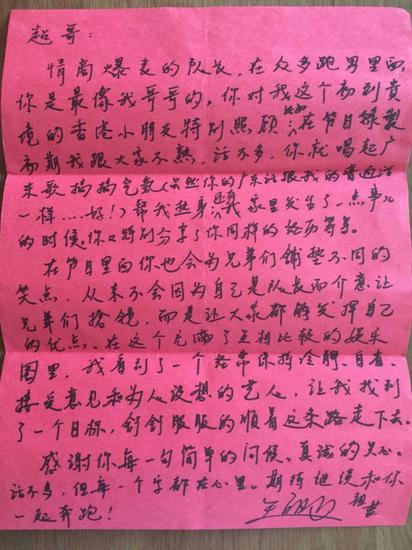 超哥：
情商爆表的队长，在众多跑男里面
你是最像我哥哥的，你对我这个初到贵
境的香港小朋友特别照顾，比如在节目录製
初期我跟大家不熟，话不多，你就唱起广
东歌搞搞气氛（虽然你的广东话跟我的普通话
一样……好！）帮我热身，我家里发生了一点事儿
的时候，你特别分享了你同样的经历等等。
在节目里面你也会为兄弟们铺垫不同的
笑点，从来不会因为自己是队长而介意让
兄弟们搶镜，而是让大家都能发挥自己
的优点。在这个充满了互相比较的娱乐
圈里，我看到了一个经常保持冷静、自省、
接受意见和为人设想的艺人，让我找到
了一个目标，舒舒服服的顺着这条路走下去。
感谢你每一句简单的问候、真诚的关心。
话不多，但每一个字都在心里。期待继续和你
一起奔跑！
祖蓝